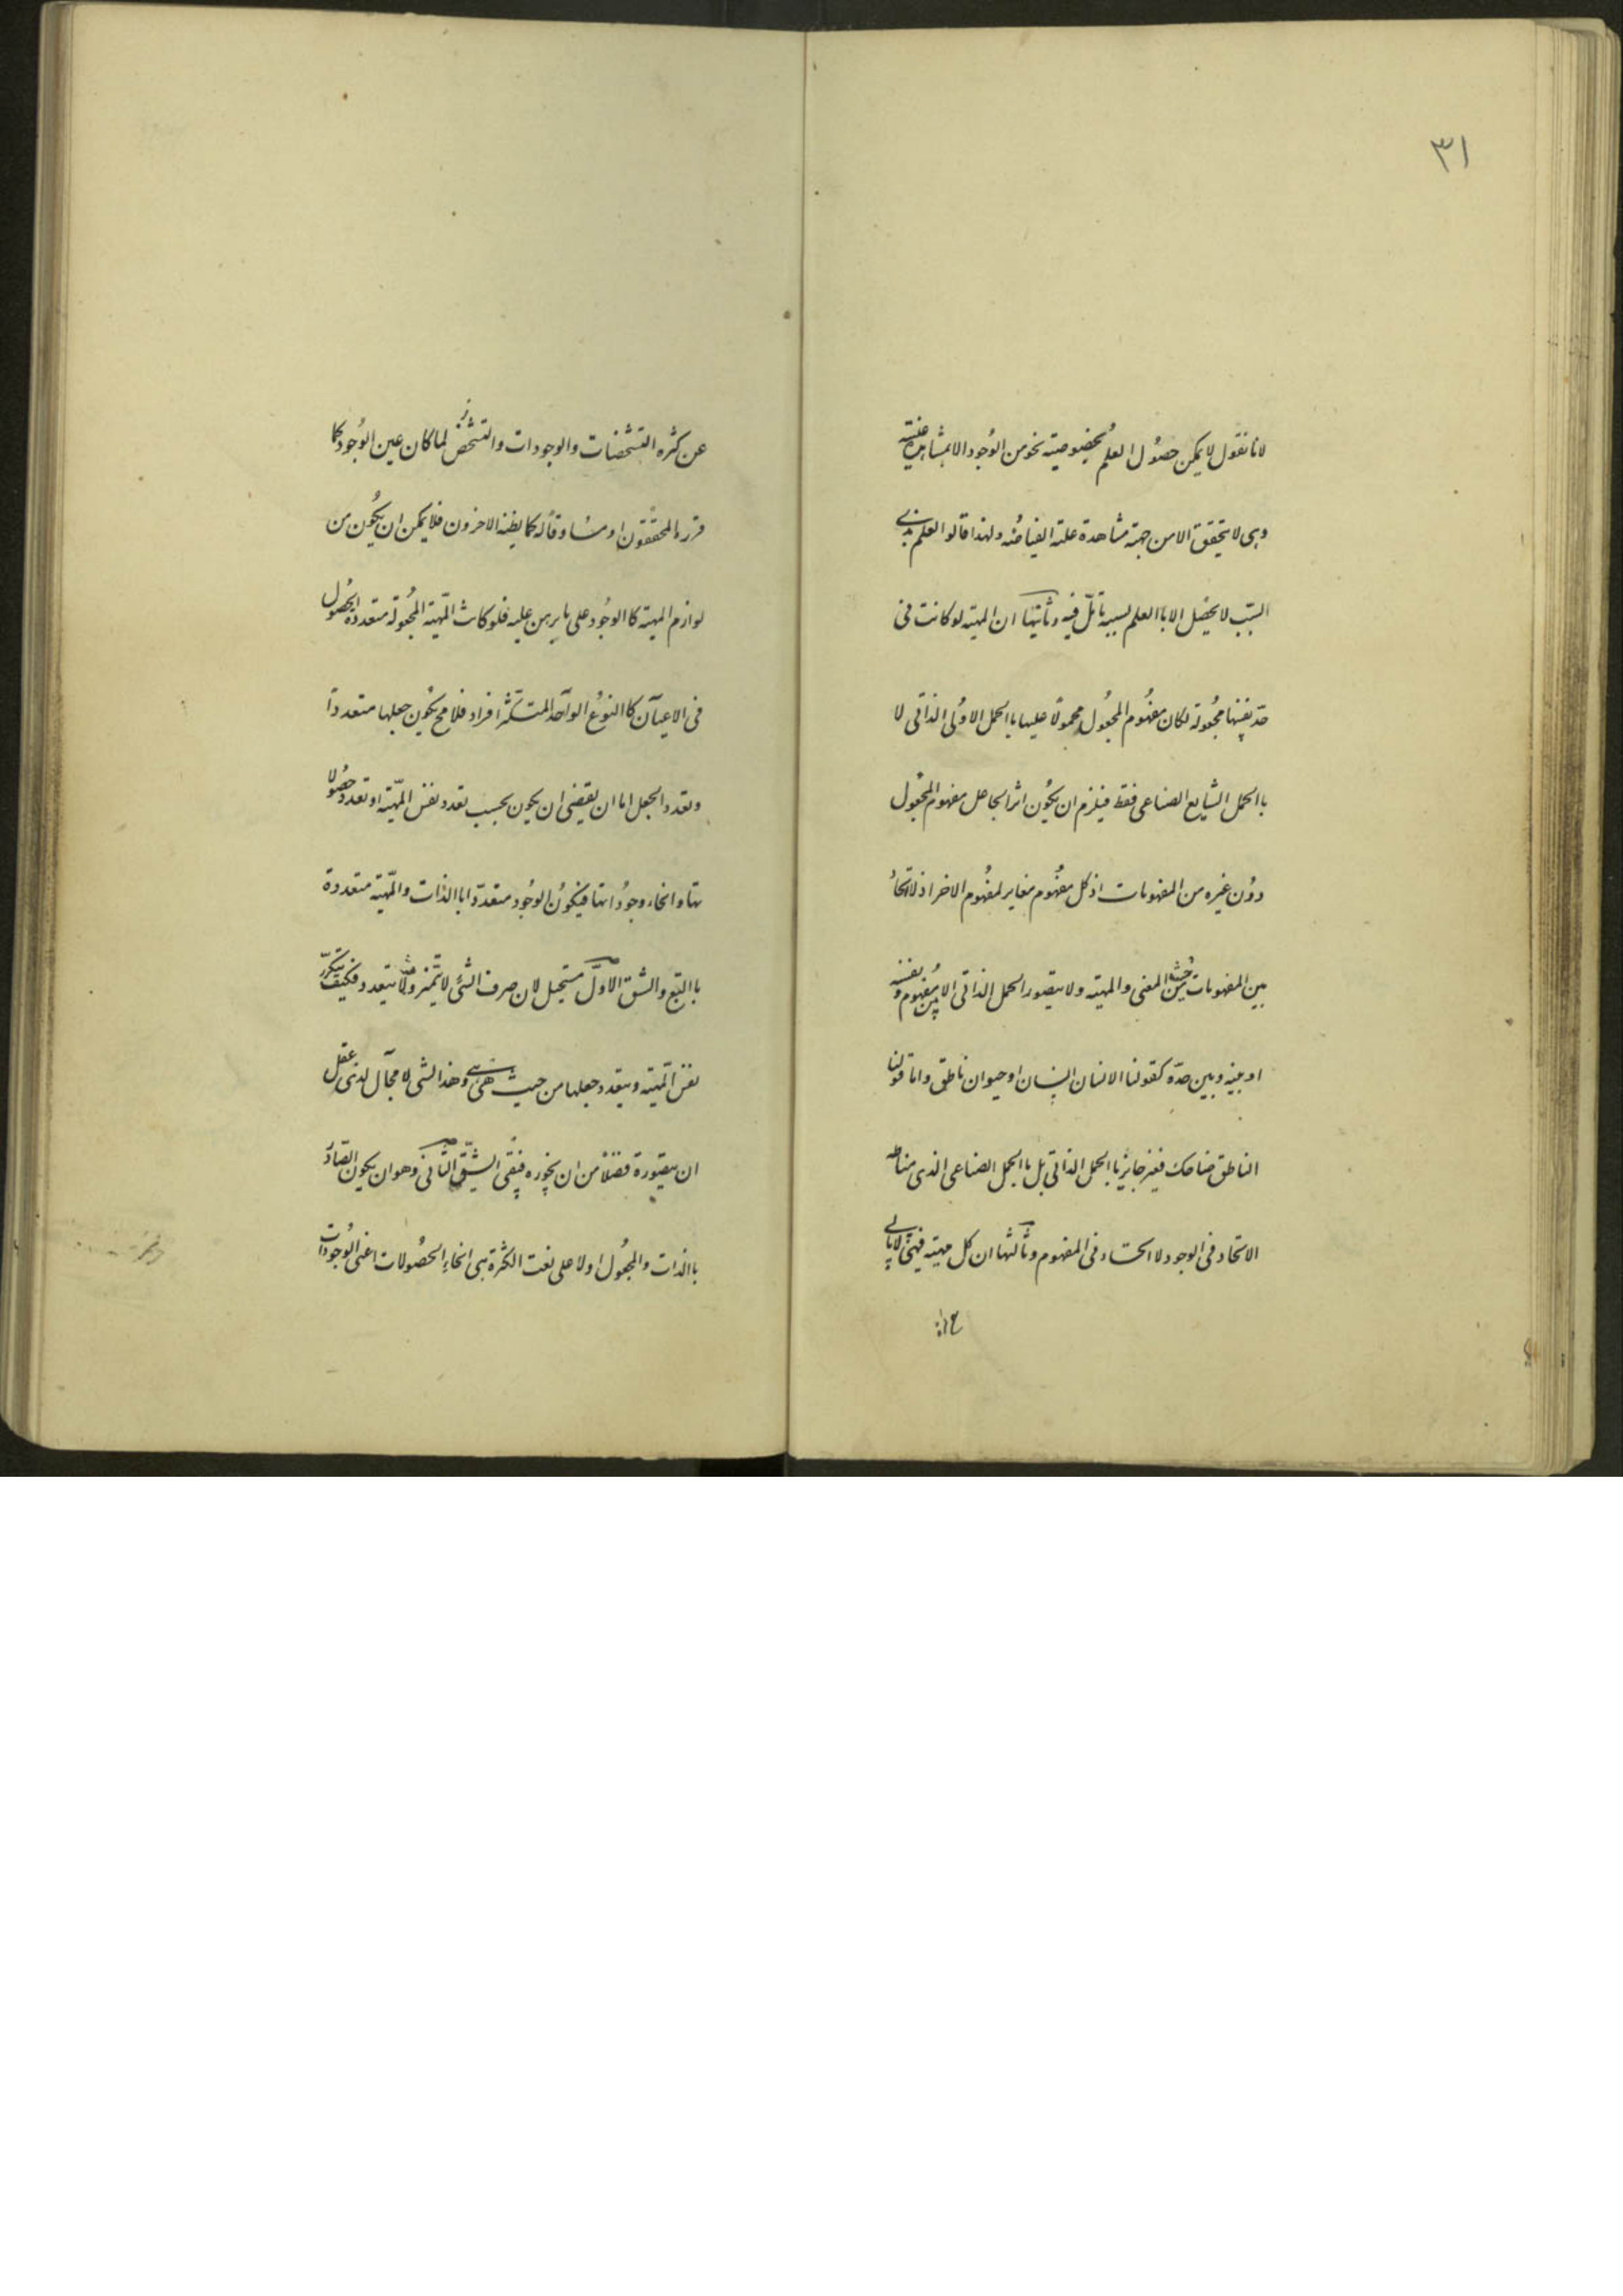 ٣١
لانا نقول لا يمكن حصول العلم بخصوصيته نحو من الوجود الا بمشاهدة عينيته
وهى لا يتحقق الا من جهته مشاهدة علته الفياضه ولهذا قالوا العلم بذى
السبب لا يحصل الا باالعلم بسببه تأمل فيه وثانيها ان المهيته لو كانت فى
حد نفسها مجعولة لكان مفهوم المجعول محمولا عليها باالحمل الاولى الذاتى لا
باالحمل الشايع الصناعى فقط فيلزم ان يكون اثر الجاعل مفهوم المجعول
دون غيره من المفهومات اذ كل مفهوم مغاير لمفهوم الاخر اذ لا اتحاد
بين المفهومات من حيث المعنى والمهيته ولا يتصور الحمل الذاتى الا بين مفهوم ونفسه
او بينه وبين حده كقولنا الانسان انسان او حيوان ناطق واما قولنا
الناطق ضاحك فغير جايز باالحمل الذاتى بل باالحمل الصناعى الذى مناطه
الاتحاد فى الوجود لا الاتحاد فى المفهوم وثالثها ان كل مهيته فهى لا يابى
عن كثره التشخصات والوجودات والتشخص لما كان عين الوجود كما
قرره المحققون او مساوقا له كما يظنه الاخرون فلا يمكن ان يكون من
لوازم المهيته كا الوجود على ما برهن عليه فلو كانت المهيته المجعولة متعددة الحصول
فى الاعيان كا النوع الواحد المتكثر افراد فلا مح يكون جعلها متعددا
وتعدد الجعل اما ان يقتضى ان يكون بحسب تعدد نفس المهيته او تعدد حصولا
تها وانحاء وجوداتها فيكون الوجود متعددا باالذات والمهيته متعددة
باالتبع والشق الاول مستحيل لان صرف الشئ لا يتميز ولا يتعدد فكيف يتكرر
نفس المهيته ويتعدد جعلها من حيث هى هى وهذا لشى لا مجال لذى عقل
ان يتصوره فضلا من ان يجوزه فبقى الشق الثانى وهو ان يكون الصادر
باالذات والمجعول اولا على نعت الكثرة هى انحاء الحصولات اعنى الوجودات